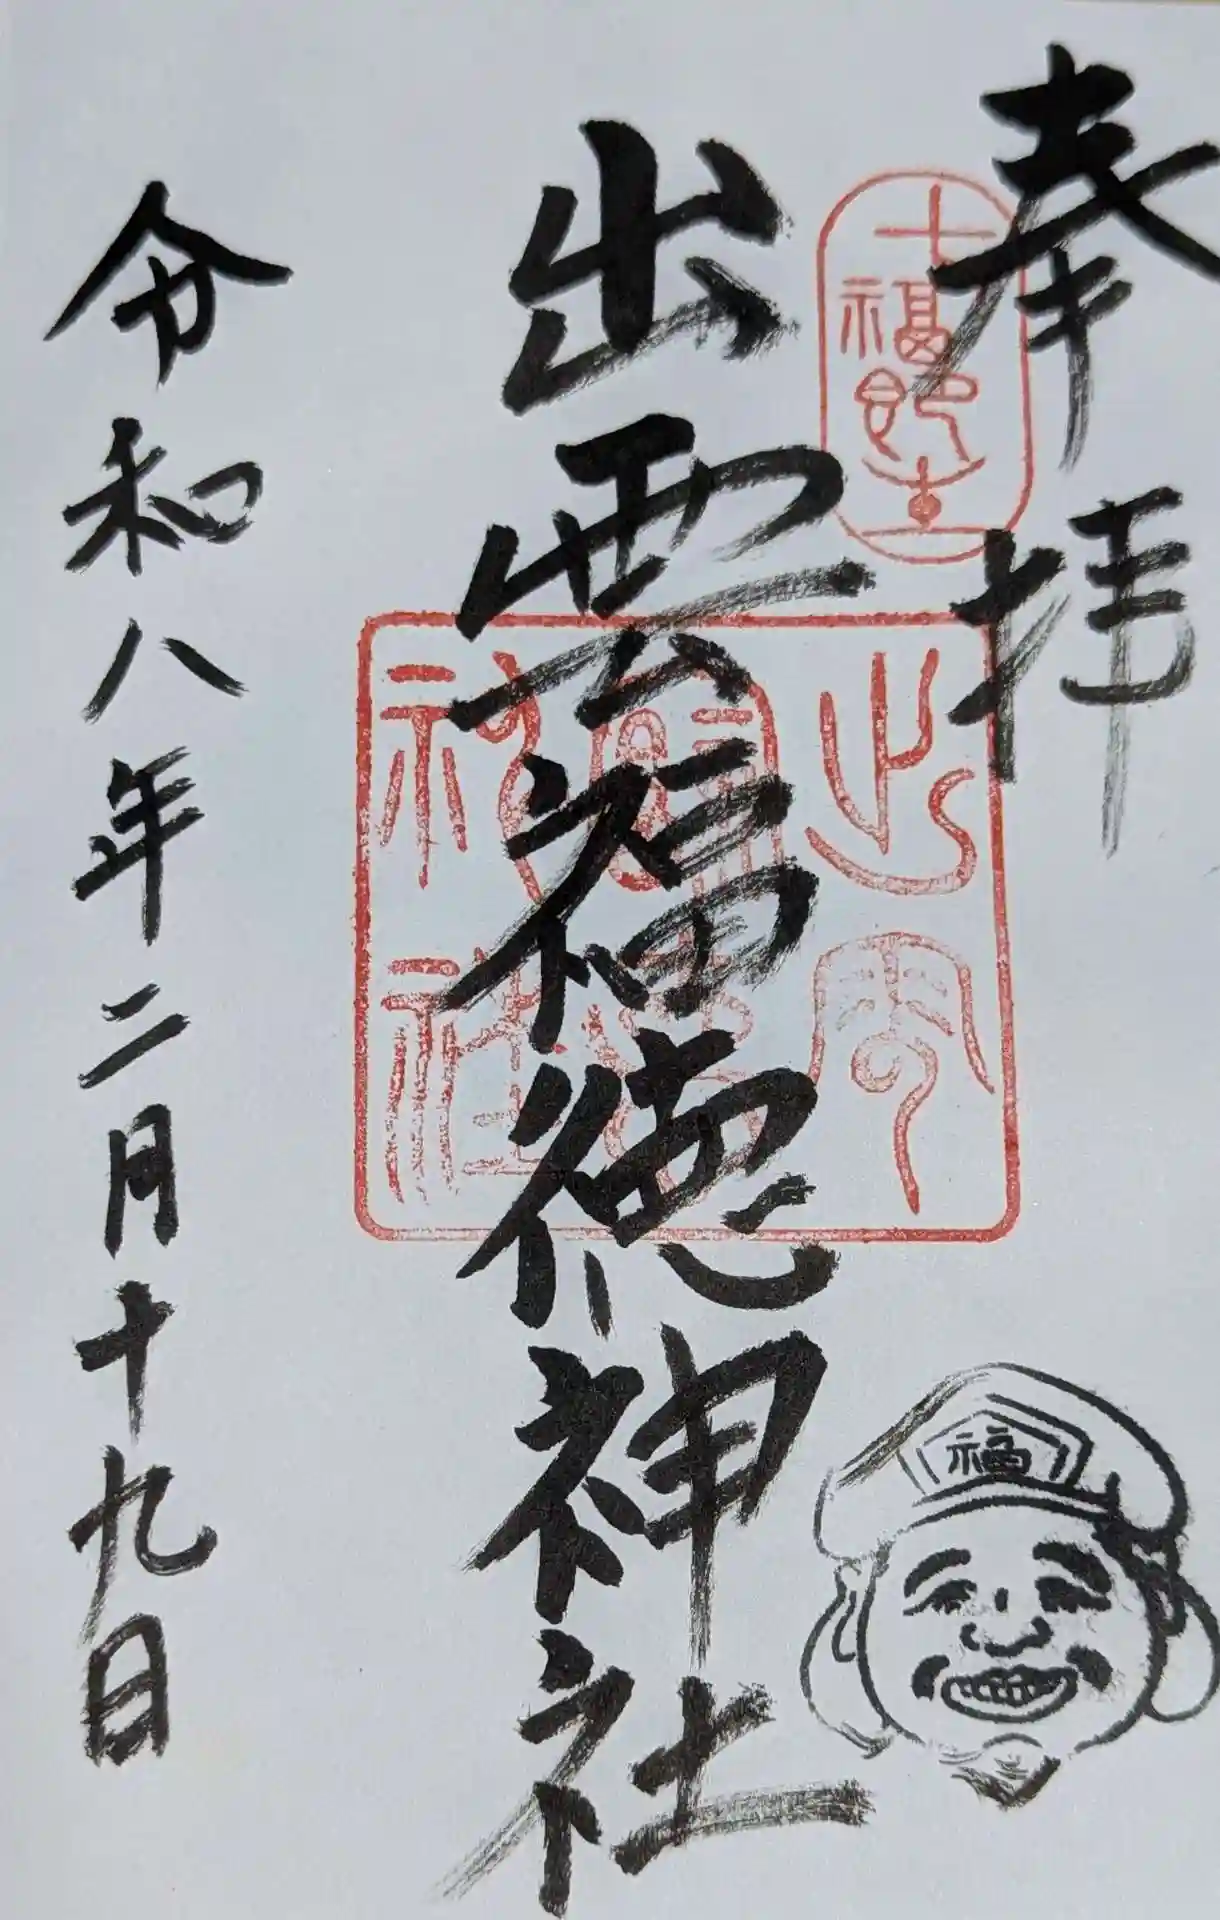 奉拝
出雲福徳神社
出雲
神社
令和八年二月十九日
福